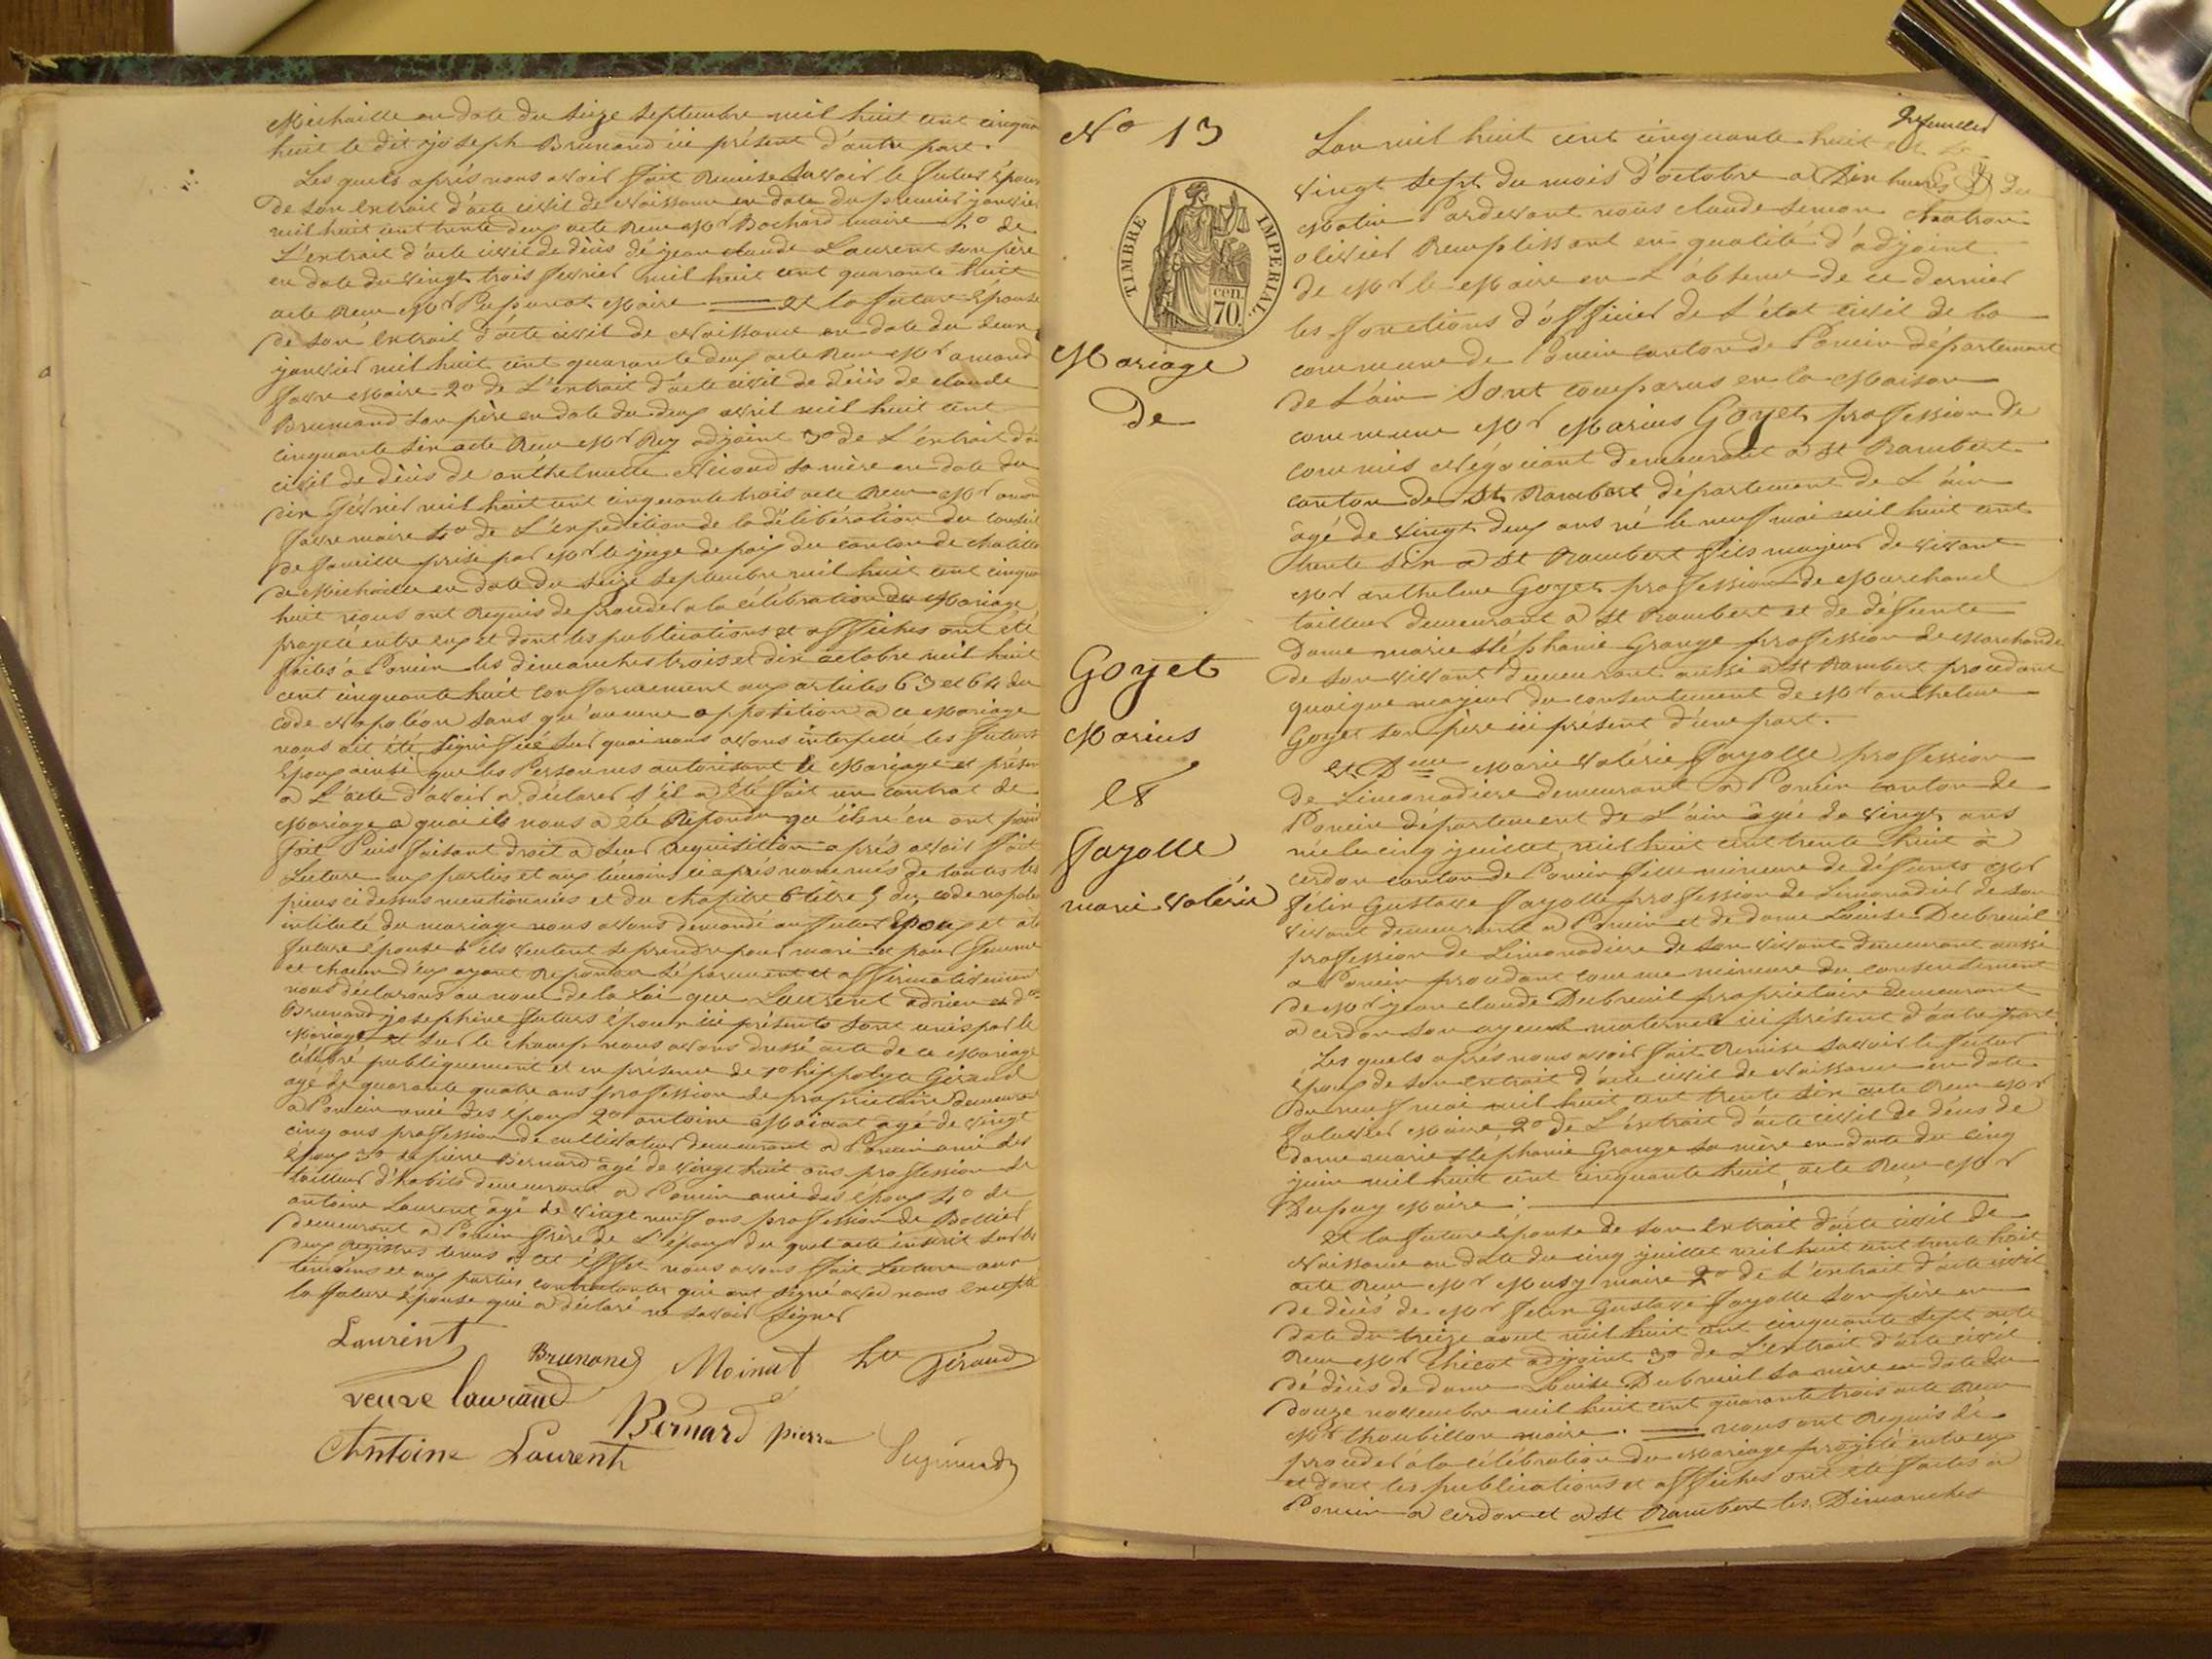 Michaille en date du seize septembre mil huit cent cinquante
huit le dit joseph Brunand ici présent d'autre part.
Les quels après nous avoir fait remise savoir le futur époux
de son extrait d'acte civil de naissance en date du premier janvier
mil huit cent trente deux acte reçu Mr Bochard maire 2o de
L'extrait d'acte civil de décès de jean claude Laurent son père
en date du vingt trois fevrier mil huit cent quarante huit
acte reçu Mr maire et la future épouse
de son extrait d'acte civil de naissance en date du deux
janvier mil huit cent quarante deux acte reçu Mr amand
favre maire 2o de L'extrait d'acte civil de décès de claude
Brunand son père en date du deux avril mil huit cent
cinquante six acte reçu Mr Rey adjoint 3o de L'extrait d'acte
civil de décès de anthelmette Nicoud sa mère en date du
dix février mil huit cent cinquante trois acte reçu Mr amand
favre maire 4o de L'expedition de la délibération du conseil
de famille prise par Mr le juge de paix du canton de chatillon
de Michaille en date du seize septembre mil huit cent cinquante
huit nous ont requis de proceder a la célébration du Mariage
projeté entre eux et dont les publications et affiches ont été
faites à Poncin les dimanches trois et dix octobre mil huit
cent cinquante huit conformement aux articles 63 et 64 du
code Napoléon sans qu'aucune opposition a ce Mariage
nous ait été signifiée sur quoi nous avons interpellé les futurs
époux ainsi que les Personnes autorisant le Mariage et présents
a L'acte d'avoir a déclarer s'il a été fait un contrat de
Mariage a quoi ils nous a été repondu qu'ils n'en ont point
fait Puis faisant droit a leur requisition après avoir fait
Lecture aux parties et aux témoins ci après nommés de toutes les
pieces ci dessus mentionnées et du chapitre 6 titre 5 du code napoléon
intitulé du mariage nous avons demandé au futur époux et a la
future épouse s'ils veulent se prendre pour mari et pour femme
et chacun d'eux ayant repondu séparement et affirmativement
nous déclarons au nom de la Loi que Laurent adrien et dlle
Brunand josephine futurs époux ici présents sont unis par le
Mariage et sur le champ nous avons dressé acte de ce Mariage
célébré publiquement et en présence de 1o hippolyte Giraud
agé de quarante quatre ans profession de propriétaire demeurant
a Poncin ami des époux 2o antoine Moinat agé de vingt
cinq ans profession de cultivateur demeurant a Poncin ami des
époux 3o de pierre Bernard agé de vingt huit ans profession de
tailleur d'habits demeurant a Poncin ami des époux 4o de
antoine Laurent âgé de vingt neuf ans profession de
demeurant a Poncin frère de L'époux du quel acte inscrit sur les
deux registres tenus a cet effet nous avons fait Lecture aux
témoins et aux parties contractantes qui ont signé avec nous excepté
la future épouse qui a déclaré ne savoir signer
Laurent
Brunand Moinat hte Giraud
veuve laurand
Bernard pierre
Antoine Laurent
No 13
TIMBRE IMPERIAL
cen. 70.
Mariage
De
Goyet
Marius
et
Fayolle
marie valérie
L'an mil huit cent cinquante huit et le
vingt sept du mois d'octobre a dix heures du
Matin Pardevant nous claude simon chatron
olivier remplissant en qualité d'adjoint
de Mr le Maire en L'absence de ce dernier
les fonctions d'officier de L'état civil de la
commune de Poncin canton de Poncin département
de L'ain Sont comparus en la Maison
commune Mr Marius Goyet profession de
commis Négociant demeurant a St Rambert
canton de St Rambert département de L'ain
âgé de vingt deux ans né le neuf mai mil huit cent
trente six a St Rambert fils majeur de vivant
Mr anthelme Goyet profession de Marchand
tailleur demeurant a St Rambert et de défunte
Dame marie stéphanie Grange profession de Marchande
de son vivant demeurant aussi a St Rambert procedant
quoique majeur du consentement de Mr anthelme
Goyet son père ici présent d'une part.
et Dlle Marie valérie Fayolle profession
de Limonadiere demeurant a Poncin canton de
Poncin département de L'ain âgée de vingt ans
née le cinq juillet mil huit cent trente huit à
cerdon canton de Poncin fille mineure de défunts Mr
félix Gustave Fayolle profession de Limonadier de son
vivant demeurant a Poncin et de dame Louise Dubreuil
profession de Limonadiere de son vivant demeurant aussi
a Poncin procedant comme mineure du consentement
de Mr jean claude Dubreuil proprietaire demeurant
a cerdon son ayeul maternel ici présent d'autre part
Les quels après nous avoir fait remise savoir le futur
époux de son extrait d'acte civil de Naissance en date
du neuf mai mil huit cent trente six acte reçu Mr
maire 2o de L'extrait d'acte civil de décès de
dame marie stéphanie Grange sa mère en date du cinq
juin mil huit cent cinquante huit, acte reçu Mr
Dupuy Maire
et la future épouse de son extrait d'acte civil de
Naissance en date du cinq juillet mil huit cent trente huit
acte reçu Mr Musy maire 2o de L'extrait d'acte civil
de décès de Mr felix Gustave Fayolle son père en
date du treize aout mil huit cent cinquante sept acte
reçu Mr adjoint 3o de L'extrait d'acte civil
de décès de dame Louise Dubreuil sa mère en date du
douze novembre mil huit cent quarante trois acte reçu
Mr maire. nous ont requis de
proceder a la célébration du Mariage projeté entre eux
et dont les publications et affiches ont été faites a
Poncin a cerdon et a St Rambert les Dimanches